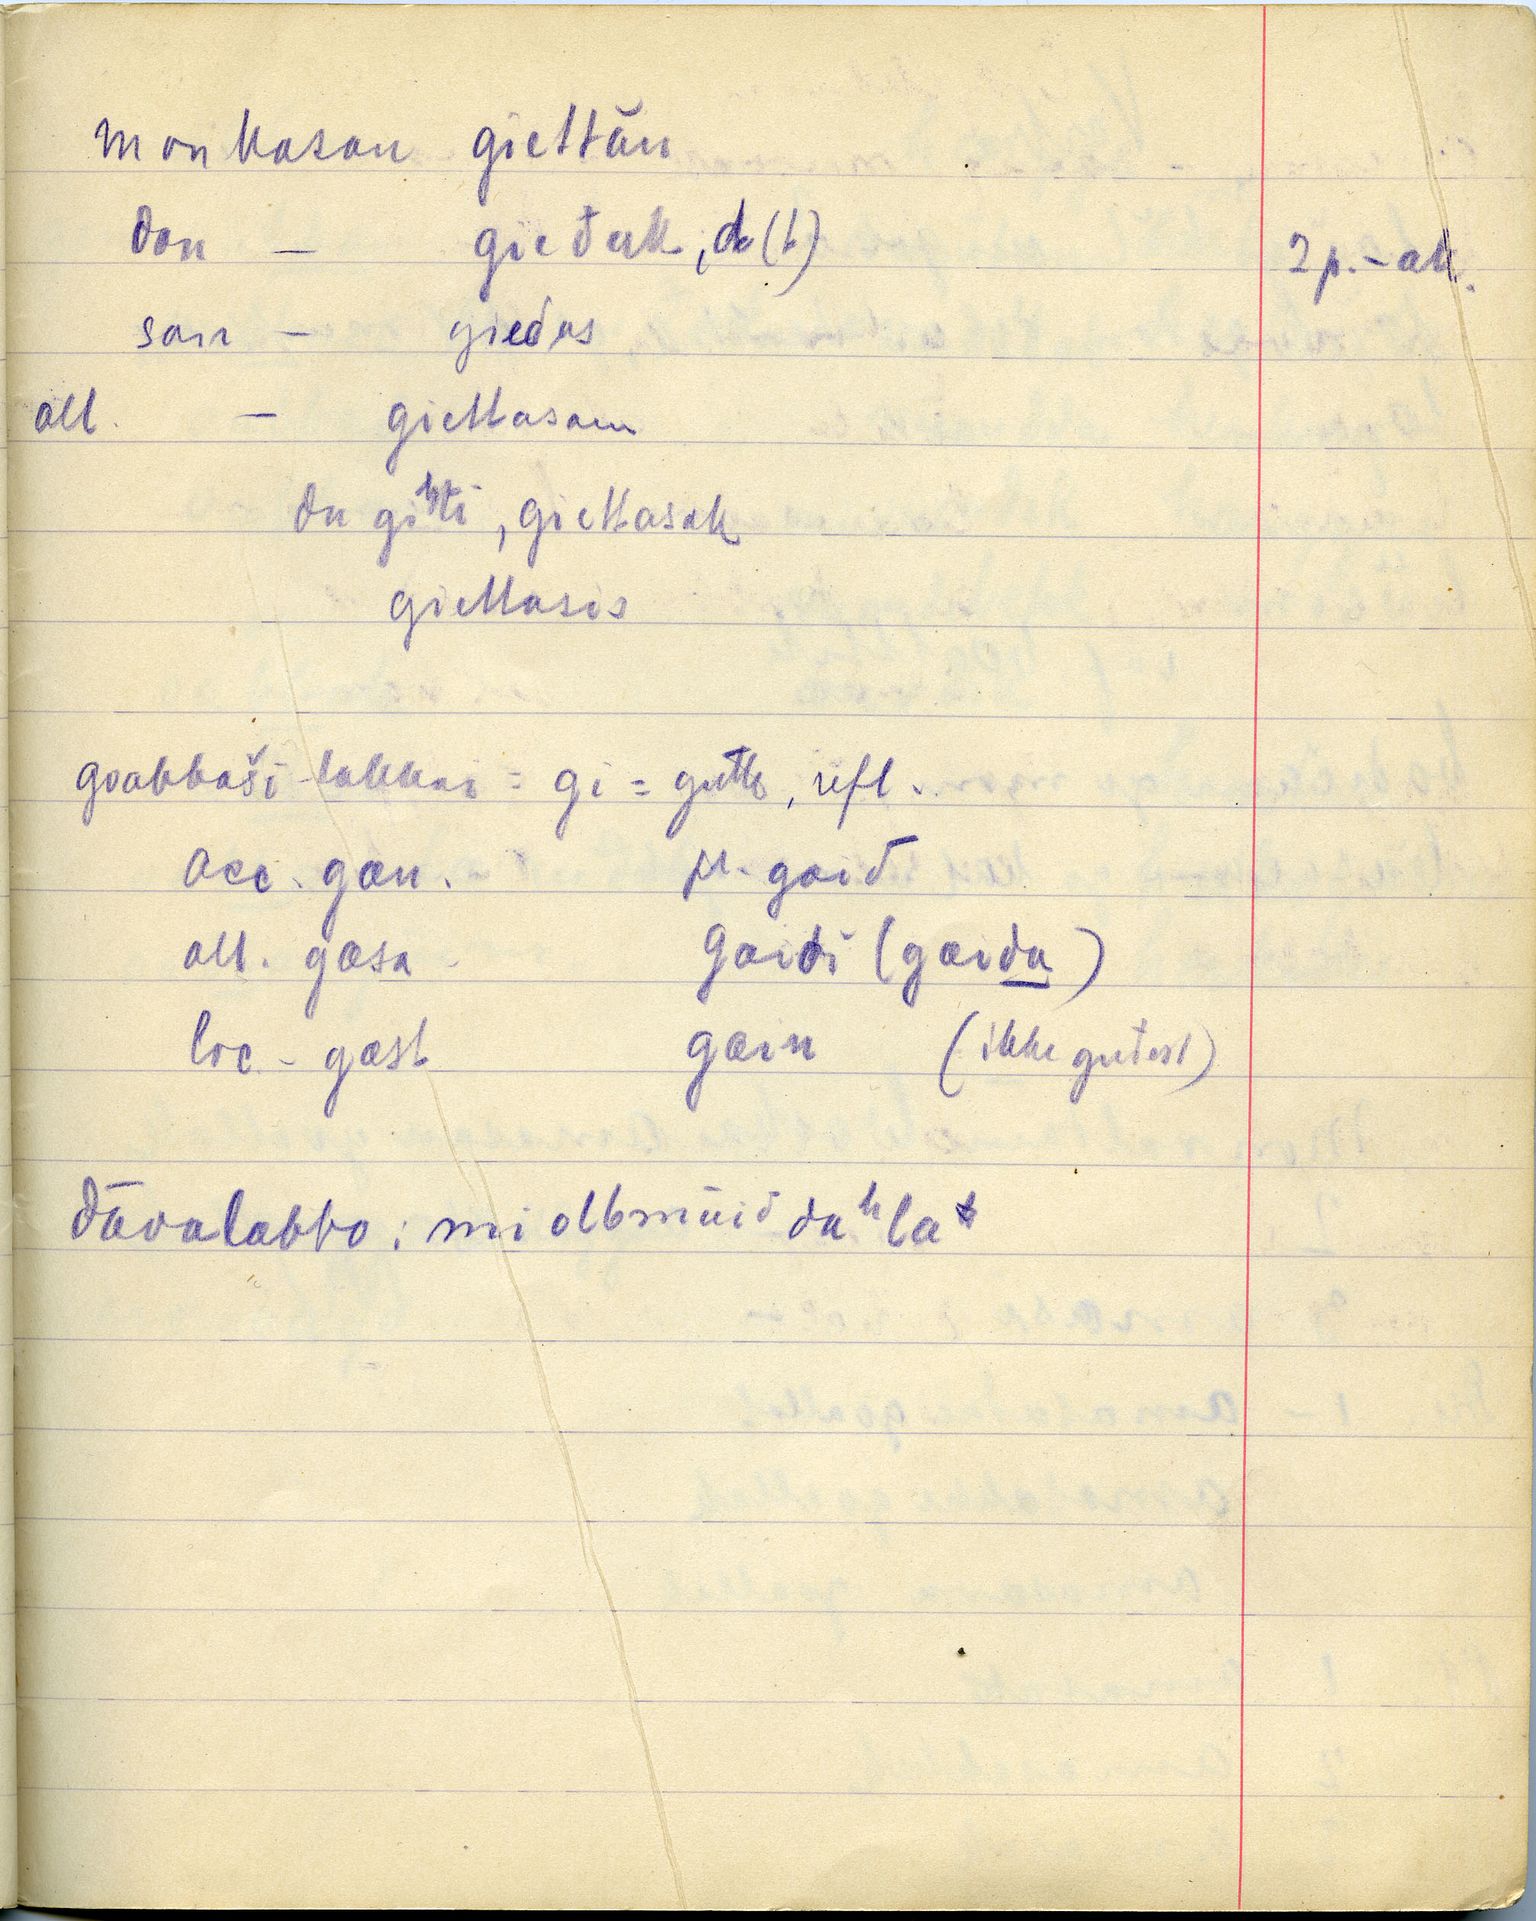 mon kasan giettăn
don – gieđak, de(t) 2 p. – ak.
san – giedas
all. – giettasam
du giti, giettasak
giettasis
goabbaši lakkai = gi = gutt, refl.
acc. gæn. pl. gaiđ
all. gæsa gaidi (gæida)
loc – gæst gæin (ikke gutest)
davalabbo: mi olbmuid daʰlat